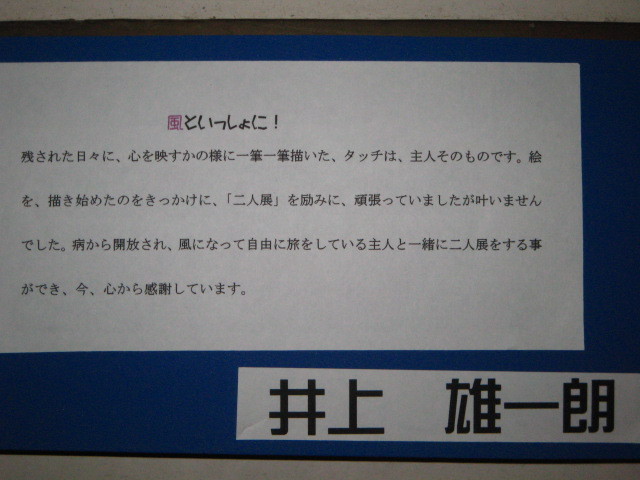 風といっしょに！
残された日々に、心を映すかの様に一筆一筆描いた、タッチは、主人そのものです。絵
を、描き始めたのをきっかけに、「二人展」を励みに、頑張っていましたが叶いません
でした。病から開放され、風になって自由に旅をしている主人と一緒に二人展をする事
ができ、今、心から感謝しています。
井上　雄一朗